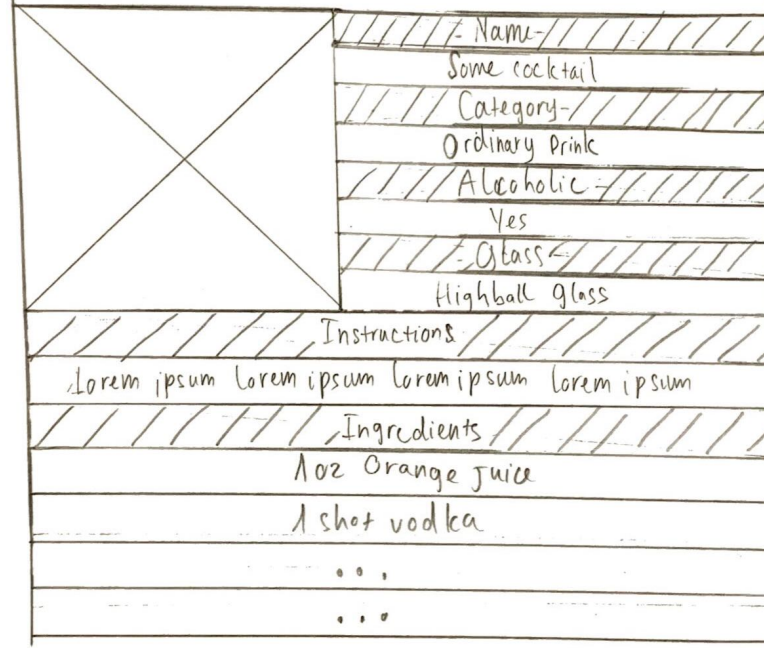 Name
Some cocktail
Category
Ordinary Drink
Alcoholic
Yes
Glass
Highball glass
Instructions
Lorem ipsum Lorem ipsum Lorem ipsum Lorem ipsum
Ingredients
1 oz Orange juice
1 shot vodka
...
...